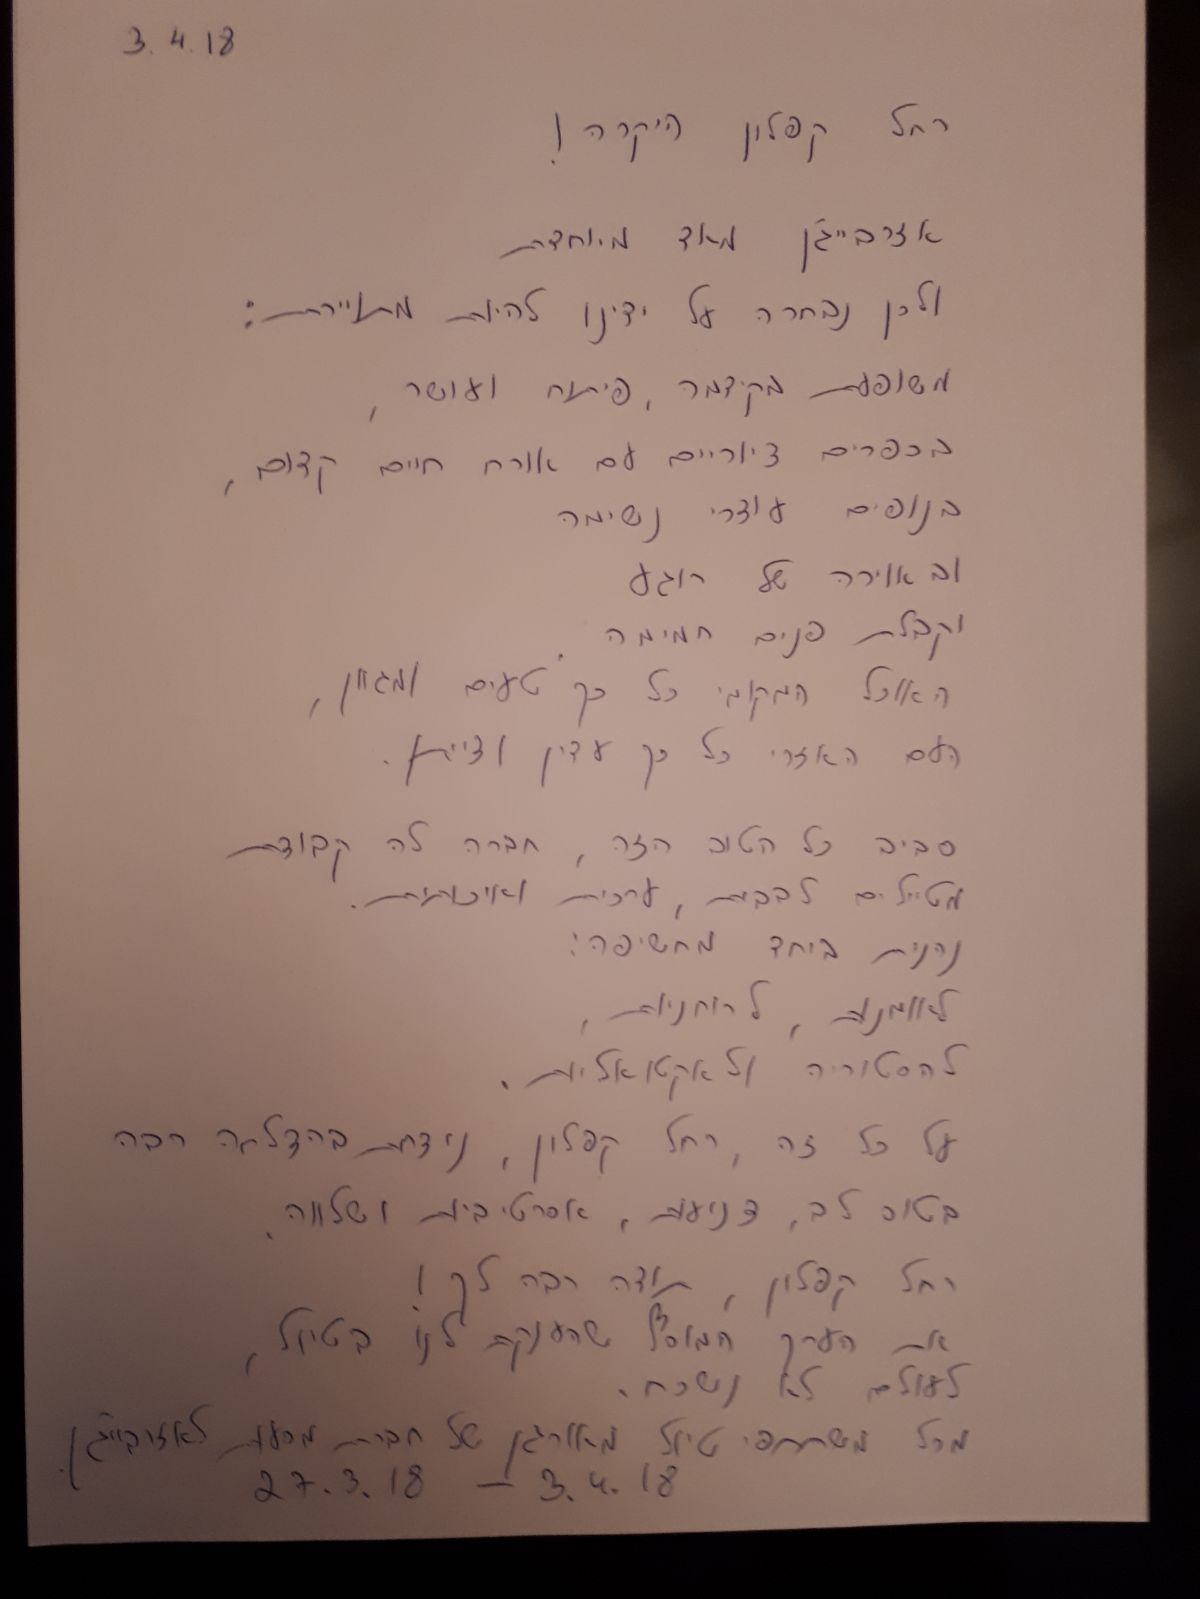 3.4.18
רחל קפלון היקרה!
אזרבייג'ן מאוד מיוחדת
ולכן נבחרה על ידינו להיות מתויירת:
משופעת בקידמה, פיתוח ועושר,
בכפרים ציוריים עם אורח חיים קדום,
בנופים עוצרי נשימה
ובאוירה של רוגע
וקבלת פנים חמימה.
האוכל המקומי כל כך טעים ומגוון,
העם האזרי כל כך עדין וצייתן.
סביב כל הטוב הזה, חברה לה קבוצת
מטיילים לבבית, ערכית ואיכותית.
נהנית ביחד מחשיפה:
לאומנות, לרוחניות,
להסטוריה ולאקטואליות.
על כל זה, רחל קפלון, ניצחת בהצלחה רבה
בטוב לב, צניעות, אסרטיביות ושלווה.
רחל קפלון, תודה רבה לך!
את הערך המוסף שהענקת לנו בטיול,
לעולם לא נשכח.
מכל משתתפי טיול מאורגן של חברת מסעות לאזרבייג'ן.
27.3.18 – 3.4.18